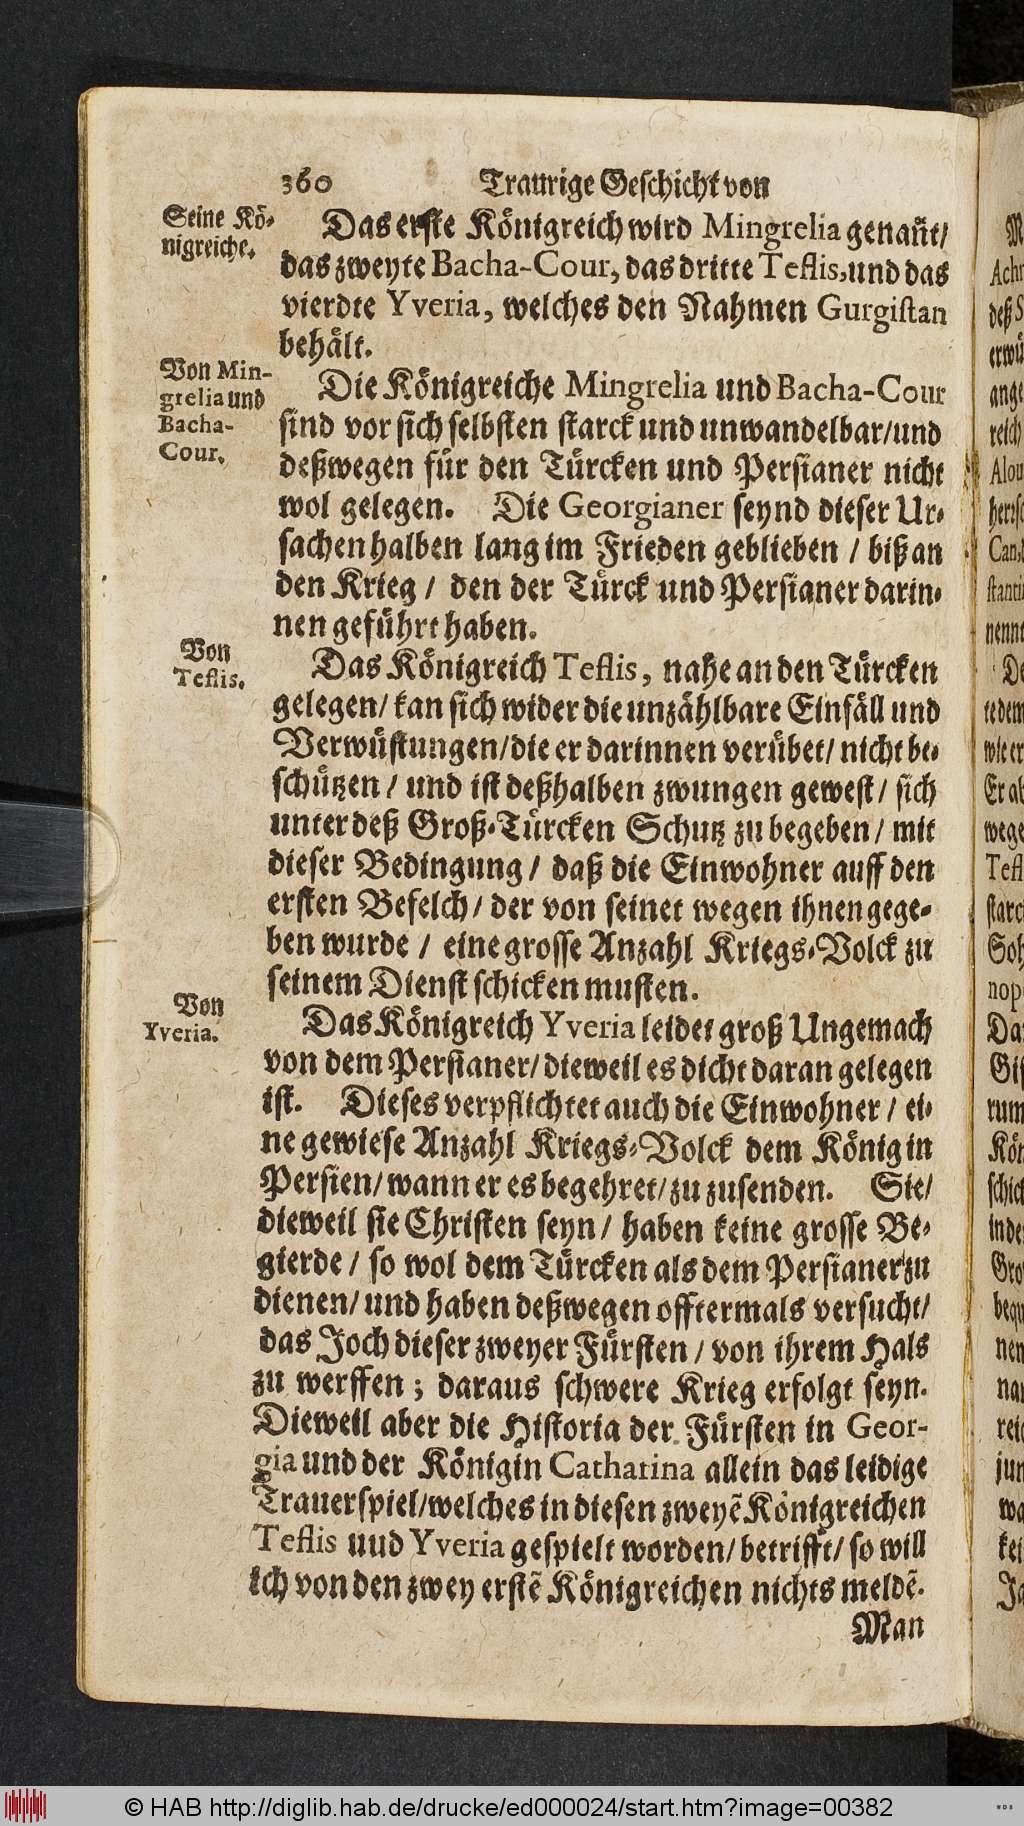 360 Traurige Geschicht von
Seine Kö-
nigreiche.
Das erste Königreich wird Mingrelia genañt/
das zweyte Bacha-Cour, das dritte Teflis, und das
vierdte Yveria, welches den Nahmen Gurgistan
behält.
Von Min-
grelia und
Bacha-
Cour.
Die Königreiche Mingrelia und Bacha-Cour
sind vor sich selbsten starck und unwandelbar/und
deßwegen für den Türcken und Persianer nicht
wol gelegen. Die Georgianer seynd dieser Ur-
sachen halben lang im Frieden geblieben / biß an
den Krieg / den der Türck und Persianer darin-
nen geführt haben.
Von
Teflis.
Das Königreich Teflis, nahe an den Türcken
gelegen/ kan sich wider die unzählbare Einfäll und
Verwüstungen/die er darinnen verübet/ nicht be-
schützen / und ist deßhalben zwungen gewest / sich
unter deß Groß-Türcken Schutz zu begeben / mit
dieser Bedingung / daß die Einwohner auff den
ersten Befelch / der von seinet wegen ihnen gege-
ben wurde / eine grosse Anzahl Kriegs-Volck zu
seinem Dienst schicken musten.
Von
Yveria.
Das Königreich Yveria leidet groß Ungemach
von dem Persianer/ dieweil es dicht daran gelegen
ist. Dieses verpflichtet auch die Einwohner / ei-
ne gewiese Anzahl Kriegs-Volck dem König in
Persien/ wann er es begehret/ zu zusenden. Sie/
dieweil sie Christen seyn / haben keine grosse Be-
gierde / so wol dem Türcken als dem Persianer zu
dienen/ und haben deßwegen offtermals versucht/
das Joch dieser zweyer Fürsten / von ihrem Hals
zu werffen ; daraus schwere Krieg erfolgt seyn.
Dieweil aber die Historia der Fürsten in Geor-
gia und der Königin Catharina allein das leidige
Trauerspiel/welches in diesen zweyẽ Königreichen
Teflis uud Yveria gespielt worden/ betrifft/ so will
ich von den zwey erstẽ Königreichen nichts meldẽ.
Man
© HAB http://diglib.hab.de/drucke/ed000024/start.htm?image=00382